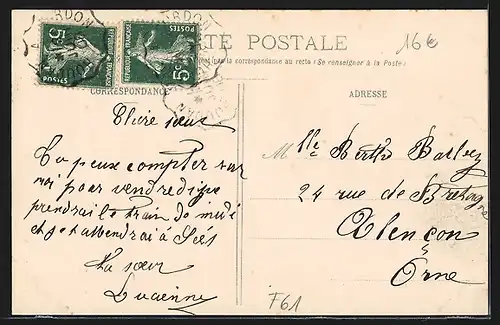 CARTE POSTALE
16€
la correspondance au recto (Se renseigner à la Poste)
CORRESPONDANCE
ADRESSE
REPUBLIQUE FRANÇAISE
POSTES
5c
REPUBLIQUE FRANÇAISE
POSTES
5c
Chère sœur
Tu peux compter sur
moi pour vendredi je
prendrai le train de midi
et je t'attendrai à Sées
Ta sœur
Lucienne
Mlle Berthe
24 rue de Bretagne
Alençon
Orne
F61